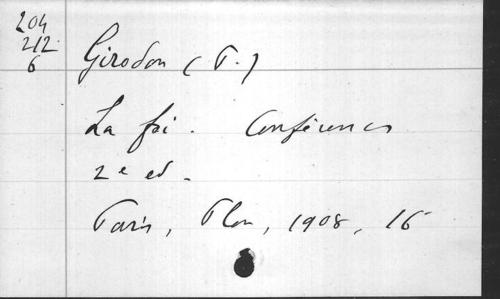 204
212
6
Girodon (P.)
La foi. Conférences
2e ed.
Paris, Plon, 1908, 16